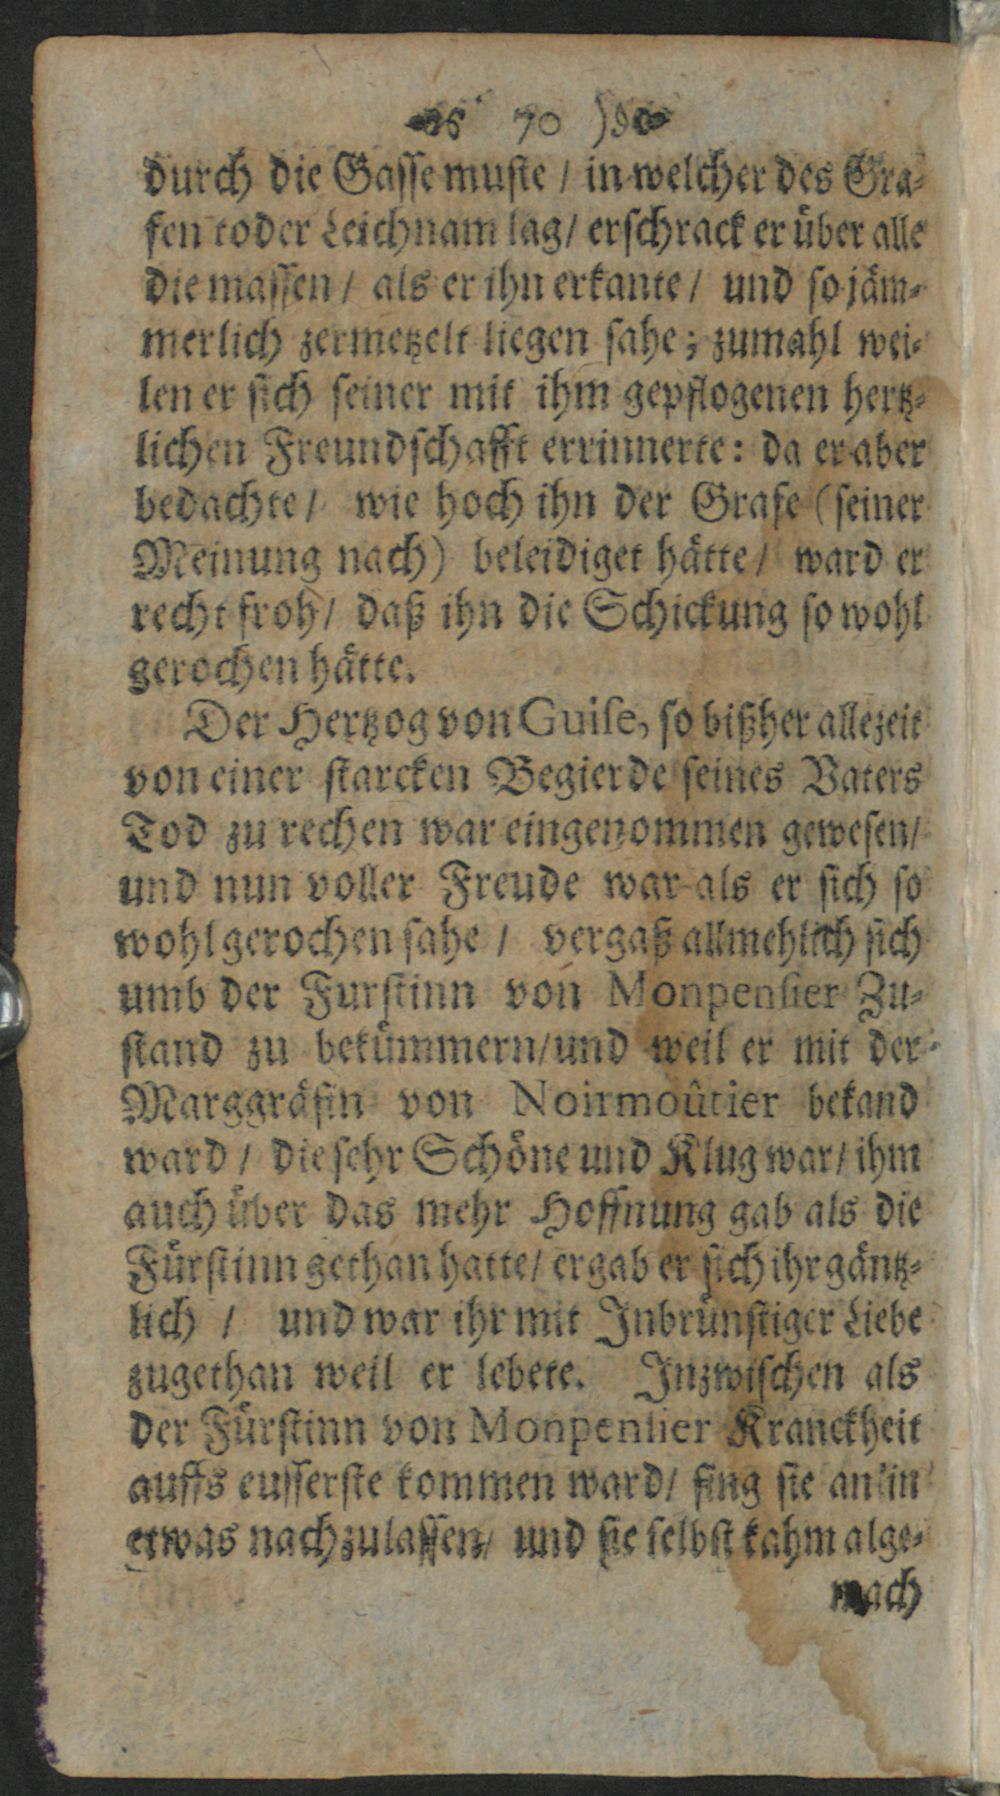 70
durch die Gasse muste / in welcher des Gra-
fen toder Leichnam lag / erschrack er über alle
die massen / als er ihn erkante / und so jäm-
merlich zermetzelt liegen sahe; zumahl wei-
len er sich seiner mit ihm gepflogenen hertz-
lichen Freundschafft errinnerte: da er aber
bedachte / wie hoch ihn der Grafe (seiner
Meinung nach) beleidiget hätte / ward er
recht froh / daß ihn die Schickung so wohl
gerochen hätte.
Der Hertzog von Guise, so bißher allezeit
von einer starcken Begierde seines Vaters
Tod zu rechen war eingenommen gewesen /
und nun voller Freude war als er sich so
wohl gerochen sahe / vergaß allmehlich sich
umb der Furstinn von Monpensier Zu-
stand zu bekümmern / und weil er mit der
Marggräfin von Noirmoûtier bekand
ward / die sehr Schöne und Klug war / ihm
auch über das mehr Hoffnung gab als die
Fürstinn gethan hatte / ergab er sich ihr gäntz-
lich / und war ihr mit Inbrünstiger Liebe
zugethan weil er lebete. Inzwischen als
der Fürstinn von Monpensier Kranckheit
auffs eusserste kommen ward / fing sie an in
etwas nachzulassen / und sie selbst kahm alge-
mach